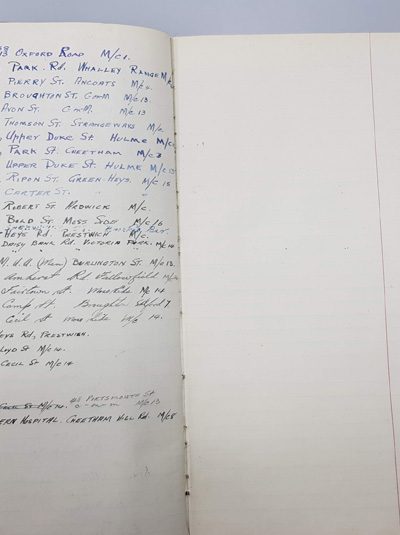 13 OXFORD ROAD M/C 1.
PARK. RD. WHALLEY RANGE M/C
PIERRY ST. ANCOATS M/C 4.
BROUGHTON ST. C on M M/C 13.
AVON ST. C on M. M/C 13
THOMSON ST. STRANGEWAYS M/C.
UPPER DUKE ST. HULME M/C
PARK ST. CHEETHAM M/C 8
UPPER DUKE ST HULME M/C 15
RIPON ST. GREEN-HEYS. M/C 15
CARTER ST. " "
ROBERT ST. ARDWICK M/C.
BOLD ST. MOSS SIDE M/C 16
HEYS RD. PRESTWICH M/C.
DAISY BANK RD. VICTORIA PARK. M/C 14
M. U. U. (Men) BURLINGTON ST. M/C 13.
Amherst Rd Fallowfield M/C
St. Moss Side M/C 14
Camp St. Broughton Salford 7
Cecil St Moss Side M/C 14.
HEYS RD, PRESTWICH.
LLOYD ST M/C 14.
CECIL ST M/C 14
CECIL ST M/C 14. PORTSMOUTH ST
C-on-M M/C 13
HOSPITAL. CHEETHAM HILL RD. M/C 8